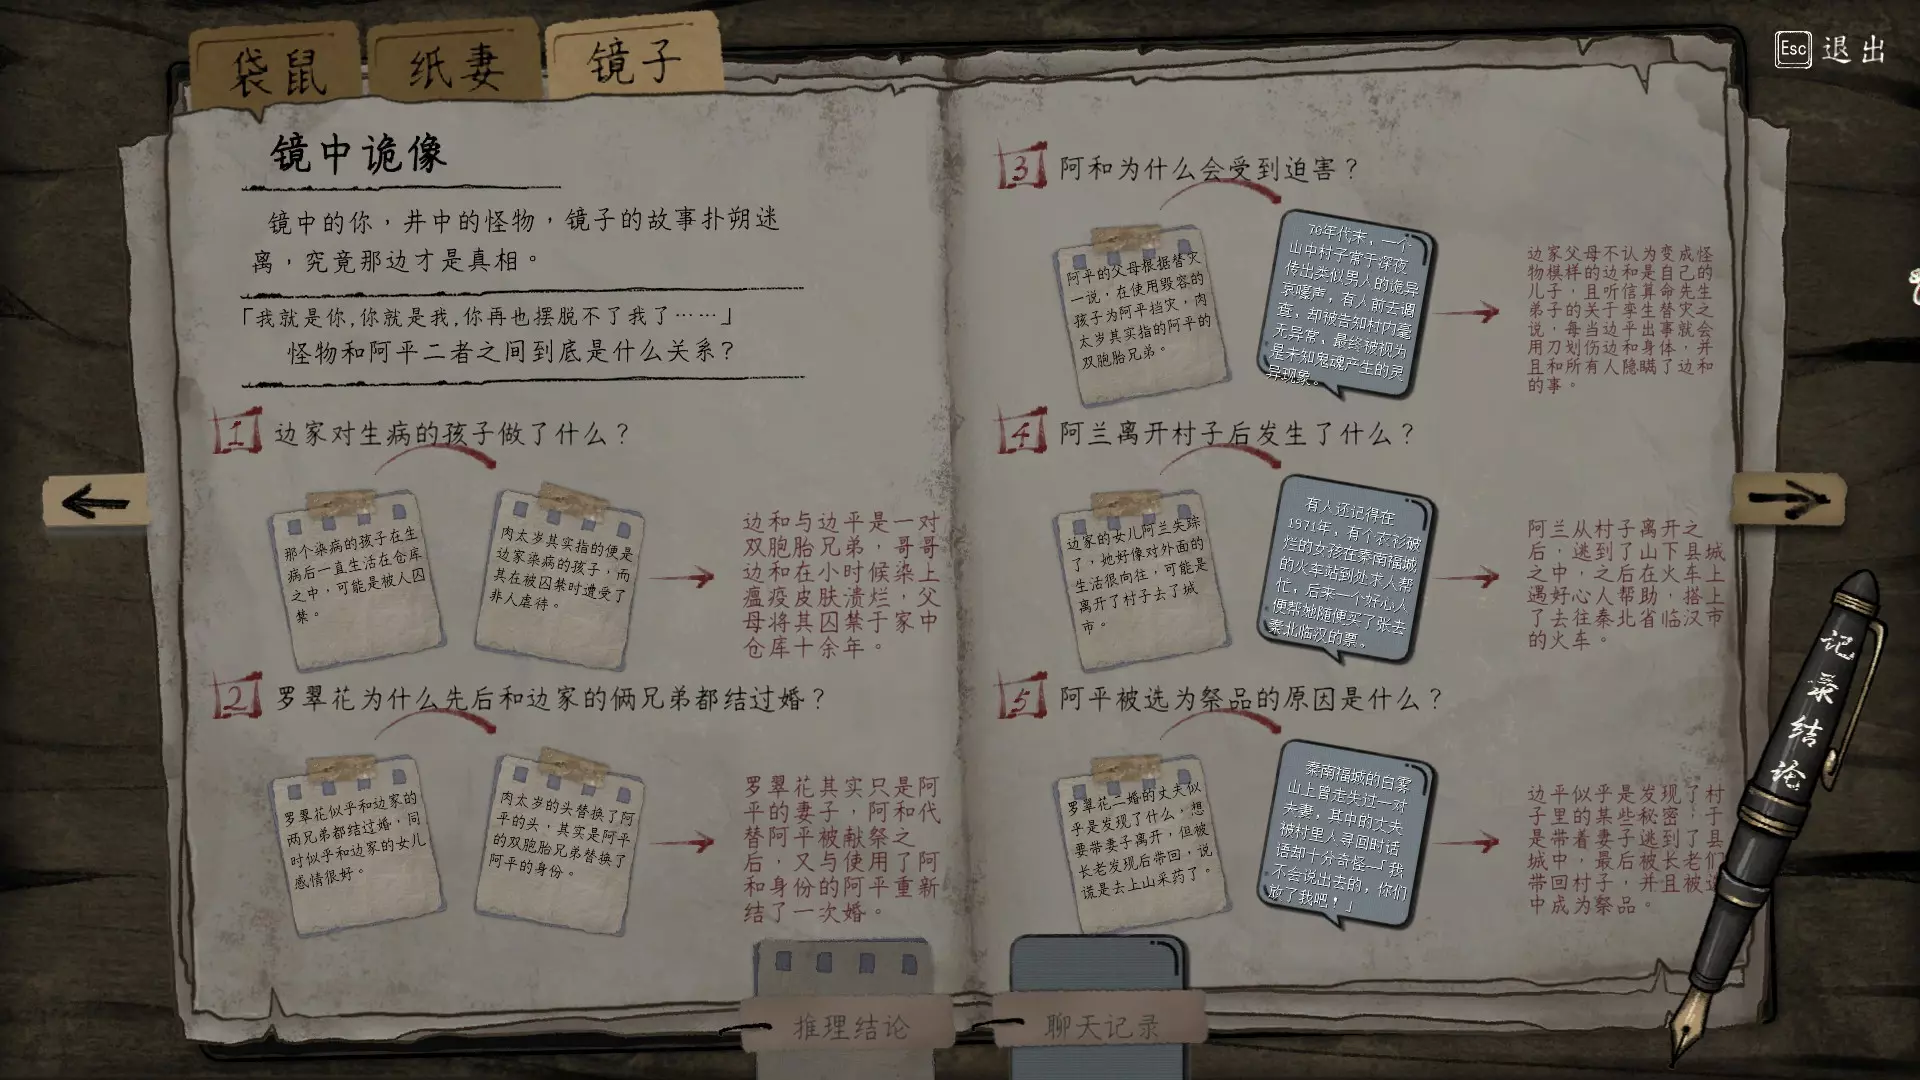 袋鼠
纸妻
镜子
Esc 退出
镜中诡像
镜中的你，井中的怪物，镜子的故事扑朔迷
离，究竟那边才是真相。
「我就是你,你就是我,你再也摆脱不了我了……」
怪物和阿平二者之间到底是什么关系？
1 边家对生病的孩子做了什么？
那个染病的孩子在生
病后一直生活在仓库
之中，可能是被人囚
禁。
肉太岁其实指的便是
边家染病的孩子，而
其在被囚禁时遭受了
非人虐待。
边和与边平是一对
双胞胎兄弟，哥哥
边和在小时候染上
瘟疫皮肤溃烂，父
母将其囚禁于家中
仓库十余年。
2 罗翠花为什么先后和边家的俩兄弟都结过婚？
罗翠花似乎和边家的
两兄弟都结过婚，同
时似乎和边家的女儿
感情很好。
肉太岁的头替换了阿
平的头，其实是阿平
的双胞胎兄弟替换了
阿平的身份。
罗翠花其实只是阿
平的妻子，阿和代
替阿平被献祭之
后，又与使用了阿
和身份的阿平重新
结了一次婚。
3 阿和为什么会受到迫害？
阿平的父母根据替灾
一说，在使用毁容的
孩子为阿平挡灾，肉
太岁其实指的阿平的
双胞胎兄弟。
70年代末，一个
山中村子常于深夜
传出类似男人的诡异
哀嚎声，有人前去调
查，却被告知村内毫
无异常、最终被视为
是未知鬼魂产生的灵
异现象。
边家父母不认为变成怪
物模样的边和是自己的
儿子，且听信算命先生
弟子的关于孪生替灾之
说，每当边平出事就会
用刀划伤边和身体，并
且和所有人隐瞒了边和
的事。
4 阿兰离开村子后发生了什么？
边家的女儿阿兰失踪
了，她好像对外面的
生活很向往，可能是
离开了村子去了城
市。
有人还记得在
1971年，有个衣衫破
烂的女孩在秦南福城
的火车站到处求人帮
忙，后来一个好心人
便帮她随便买了张去
秦北临汉的票。
阿兰从村子离开之
后，逃到了山下县城
之中，之后在火车上
遇好心人帮助，搭上
了去往秦北省临汉市
的火车。
5 阿平被选为祭品的原因是什么？
罗翠花二婚的丈夫似
乎是发现了什么，想
要带妻子离开，但被
长老发现后带回，说
谎是去上山采药了。
秦南福城的白雾
山上曾走失过一对
夫妻，其中的丈夫
被村里人寻回时话
语却十分奇怪—「我
不会说出去的，你们
放了我吧！」
边平似乎是发现了村
子里的某些秘密，于
是带着妻子逃到了县
城中，最后被长老们
带回村子，并且被选
中成为祭品。
记录结论
推理结论
聊天记录